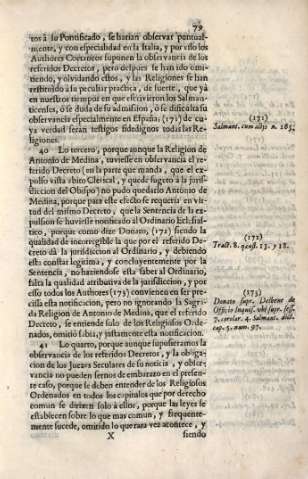 79
tos à su Pontificado, se harian observar puntual-
mente, y con especialidad en la Italia, y por esso los
Authores Coetaneos suponen la observancia de los
referidos Decretos, pero despues se han ido omi-
tiendo, y olvidando estos, y las Religiones se han
restituido à su peculiar practica, de suerte, que yà
en nuestros tiempos en que escrivieron los Salman-
ticenses, ò se duda de su admision, ò se dificulta su
observancia especialmente en España; (171) de cu-
ya verdad seràn testigos fidedignos todas las Re-
ligiones.
(171)
Salmant. cum alijs n. 285;
40 Lo tercero, porque aunque la Religion de
Antonio de Medina, tuviesse en observancia el re-
ferido Decreto (en la parte que manda, que el ex-
pulso vista abito Clerical, y quede sugeto à la juris-
diccion del Obispo) no pudo quedarlo Antonio de
Medina, porque para este efecto se requeria en vir-
tud del mismo Decreto, que la Sentencia de la ex-
pulsion se huviesse notificado al Ordinario Eclesias-
tico, porque como dize Donato, (172) siendo la
qualidad de incorregible la que por el referido De-
creto dà la jurisdiccion al Ordinario, y debiendo
esta constar legitima, y concluyentemente por la
Sentencia, no haziendose esta saber al Ordinario,
falta la qualidad atributiva de la jurisdiccion, y por
esso todos los Authores (173) convienen en ser pre-
cissa esta notificacion, pero no ignorando la Sagra-
da Religion de Antonio de Medina, que el referido
Decreto, se entiende solo de los Religiosos Orde-
nados, omitiò sabia, y justamente esta notificacion.
(172)
Tract. 8. quæst. 13. y 18.
(173)
Donato supr. Delbene de
Officio Inquis. ubi supr. sect.
7. circular. 4. Salmant. dict.
cap. 5. num. 97.
41 Lo quarto, porque aunque supusieramos la
observancia de los referidos Decretos, y la obliga-
cion de los Jueces Seculares de su noticia, y obser-
vancia no pueden sernos de embarazo en el presen-
te caso, porque se deben entender de los Religiosos
Ordenados en todos los capitulos que por derecho
comun se dirigen solo à estos, porque las leyes se
establecen sobre lo que mas comun, y frequente-
mente sucede, omitido lo que rara vez acontece, y
X
siendo